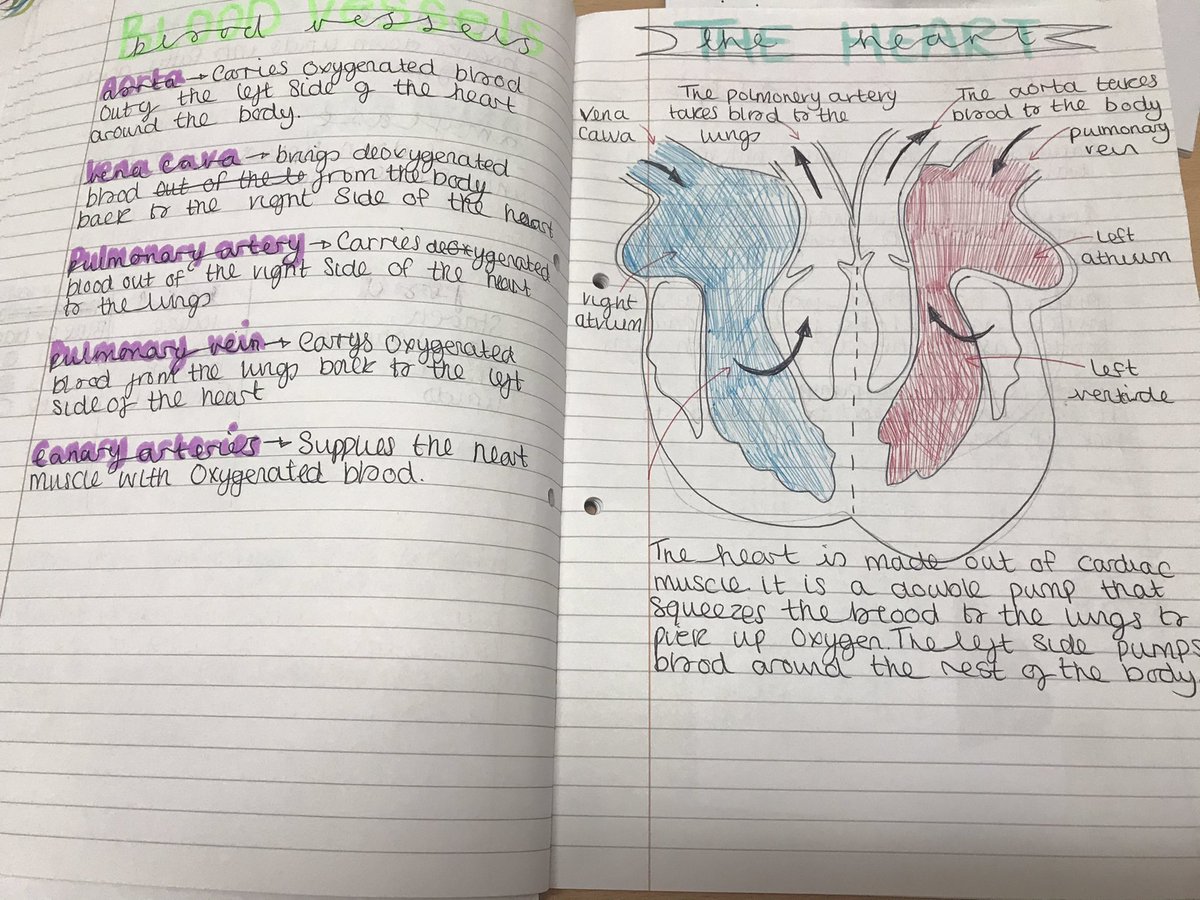 BLOOD VESSELS
blood vessels
aorta → Carries oxygenated blood
out of the left side of the heart
around the body.
Vena cava → brings deoxygenated
blood out of the to from the body
back to the right side of the heart
Pulmonary artery → Carries deoxygenated
blood out of the right side of the heart
to the lungs
pulmonary vein → carys oxygenated
blood from the lungs back to the left
side of the heart
Canary arteries → Supplies the heart
muscle with oxygenated blood.
THE HEART
the heart
vena
cava
The polmonery artery
takes blood to the
lungs
The aorta takes
blood to the body
pulmonary
vein
left
atrium
right
atrium
left
ventricle
The heart is made out of cardiac
muscle. it is a double pump that
squeezes the blood to the lungs to
pick up oxygen. The left side pumps
blood around the rest of the body